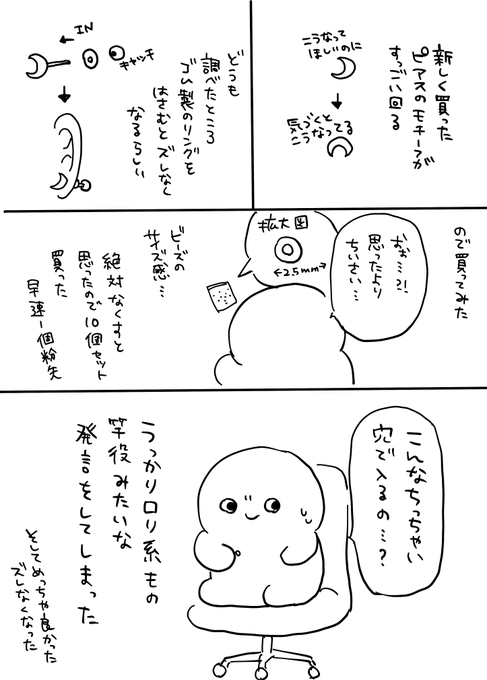 新しく買った
ピアスのモチーフが
すっごい回る
こうなって
ほしいのに
気づくと
こうなってる
どうも
調べたところ
ゴム製のリングを
はさむとズレなく
なるらしい
IN
キャッチ
ので買ってみた
おぉ…?!
思ったより
ちいさい…
拡大図
←2.5mm→
ビーズの
サイズ感…
絶対なくすと
思ったので10個セット
買った
早速1個粉失
こんなちっちゃい
穴で入るの…?
うっかりロリ系もの
竿役みたいな
発言をしてしまった
そしてめっちゃ良かった
ズレなくなった